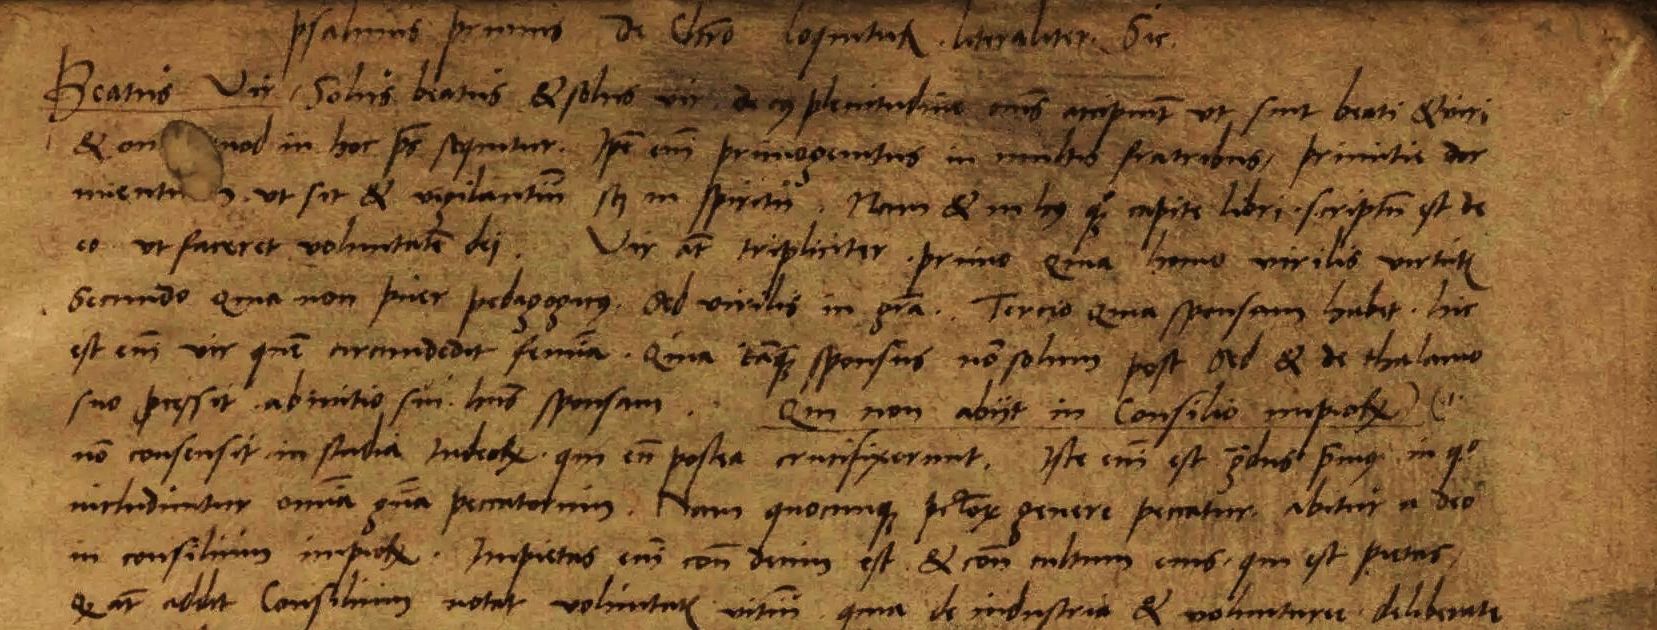 psalmus primus de Chro loquitur literaliter. Sic.
Beatus Vir / Solus beatus & solus vir. de cuius plenitudine oms accipiut ut sint beati & viri
& om quod in hoc ps sequitur. Ipe em primogenitus in multis fratribus / primitie dor
mientium. ut sit & vigilantium scz in spiritu. Nam & in hoc capite libri. scriptu est de
eo ut faceret voluntate dei. Vir at tripliciter. primo quia homo virilis virtutis
Secundo quia non puer pedagogicus. sed virilis in gra. Tercio quia sponsam habet. hic
est em vir que circumdedit femina. Quia tanq sponsus no solum post sed & de thalamo
suo pcessit. ab initio sui. hns sponsam. Qui non abijt in Consilio impioru) (i.
no consensit in studia Iudeoru. qui eu postea crucifixerunt. Iste em est gdus primus in qo
includuntur omia gna peccatorum. Nam quocunq pctoru genere peccatur. abitur a deo
in consilium impioru. Impietas em con deum est. & con cultum eius. qui est pietas.
Q at addit Consilium notat voluntatis vitium. quia de industria & voluntaree deliberate